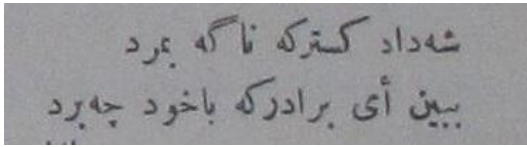 شه‌داد گسترکه ناگه بمرد
ببین أی برادرکه باخود چه‌برد